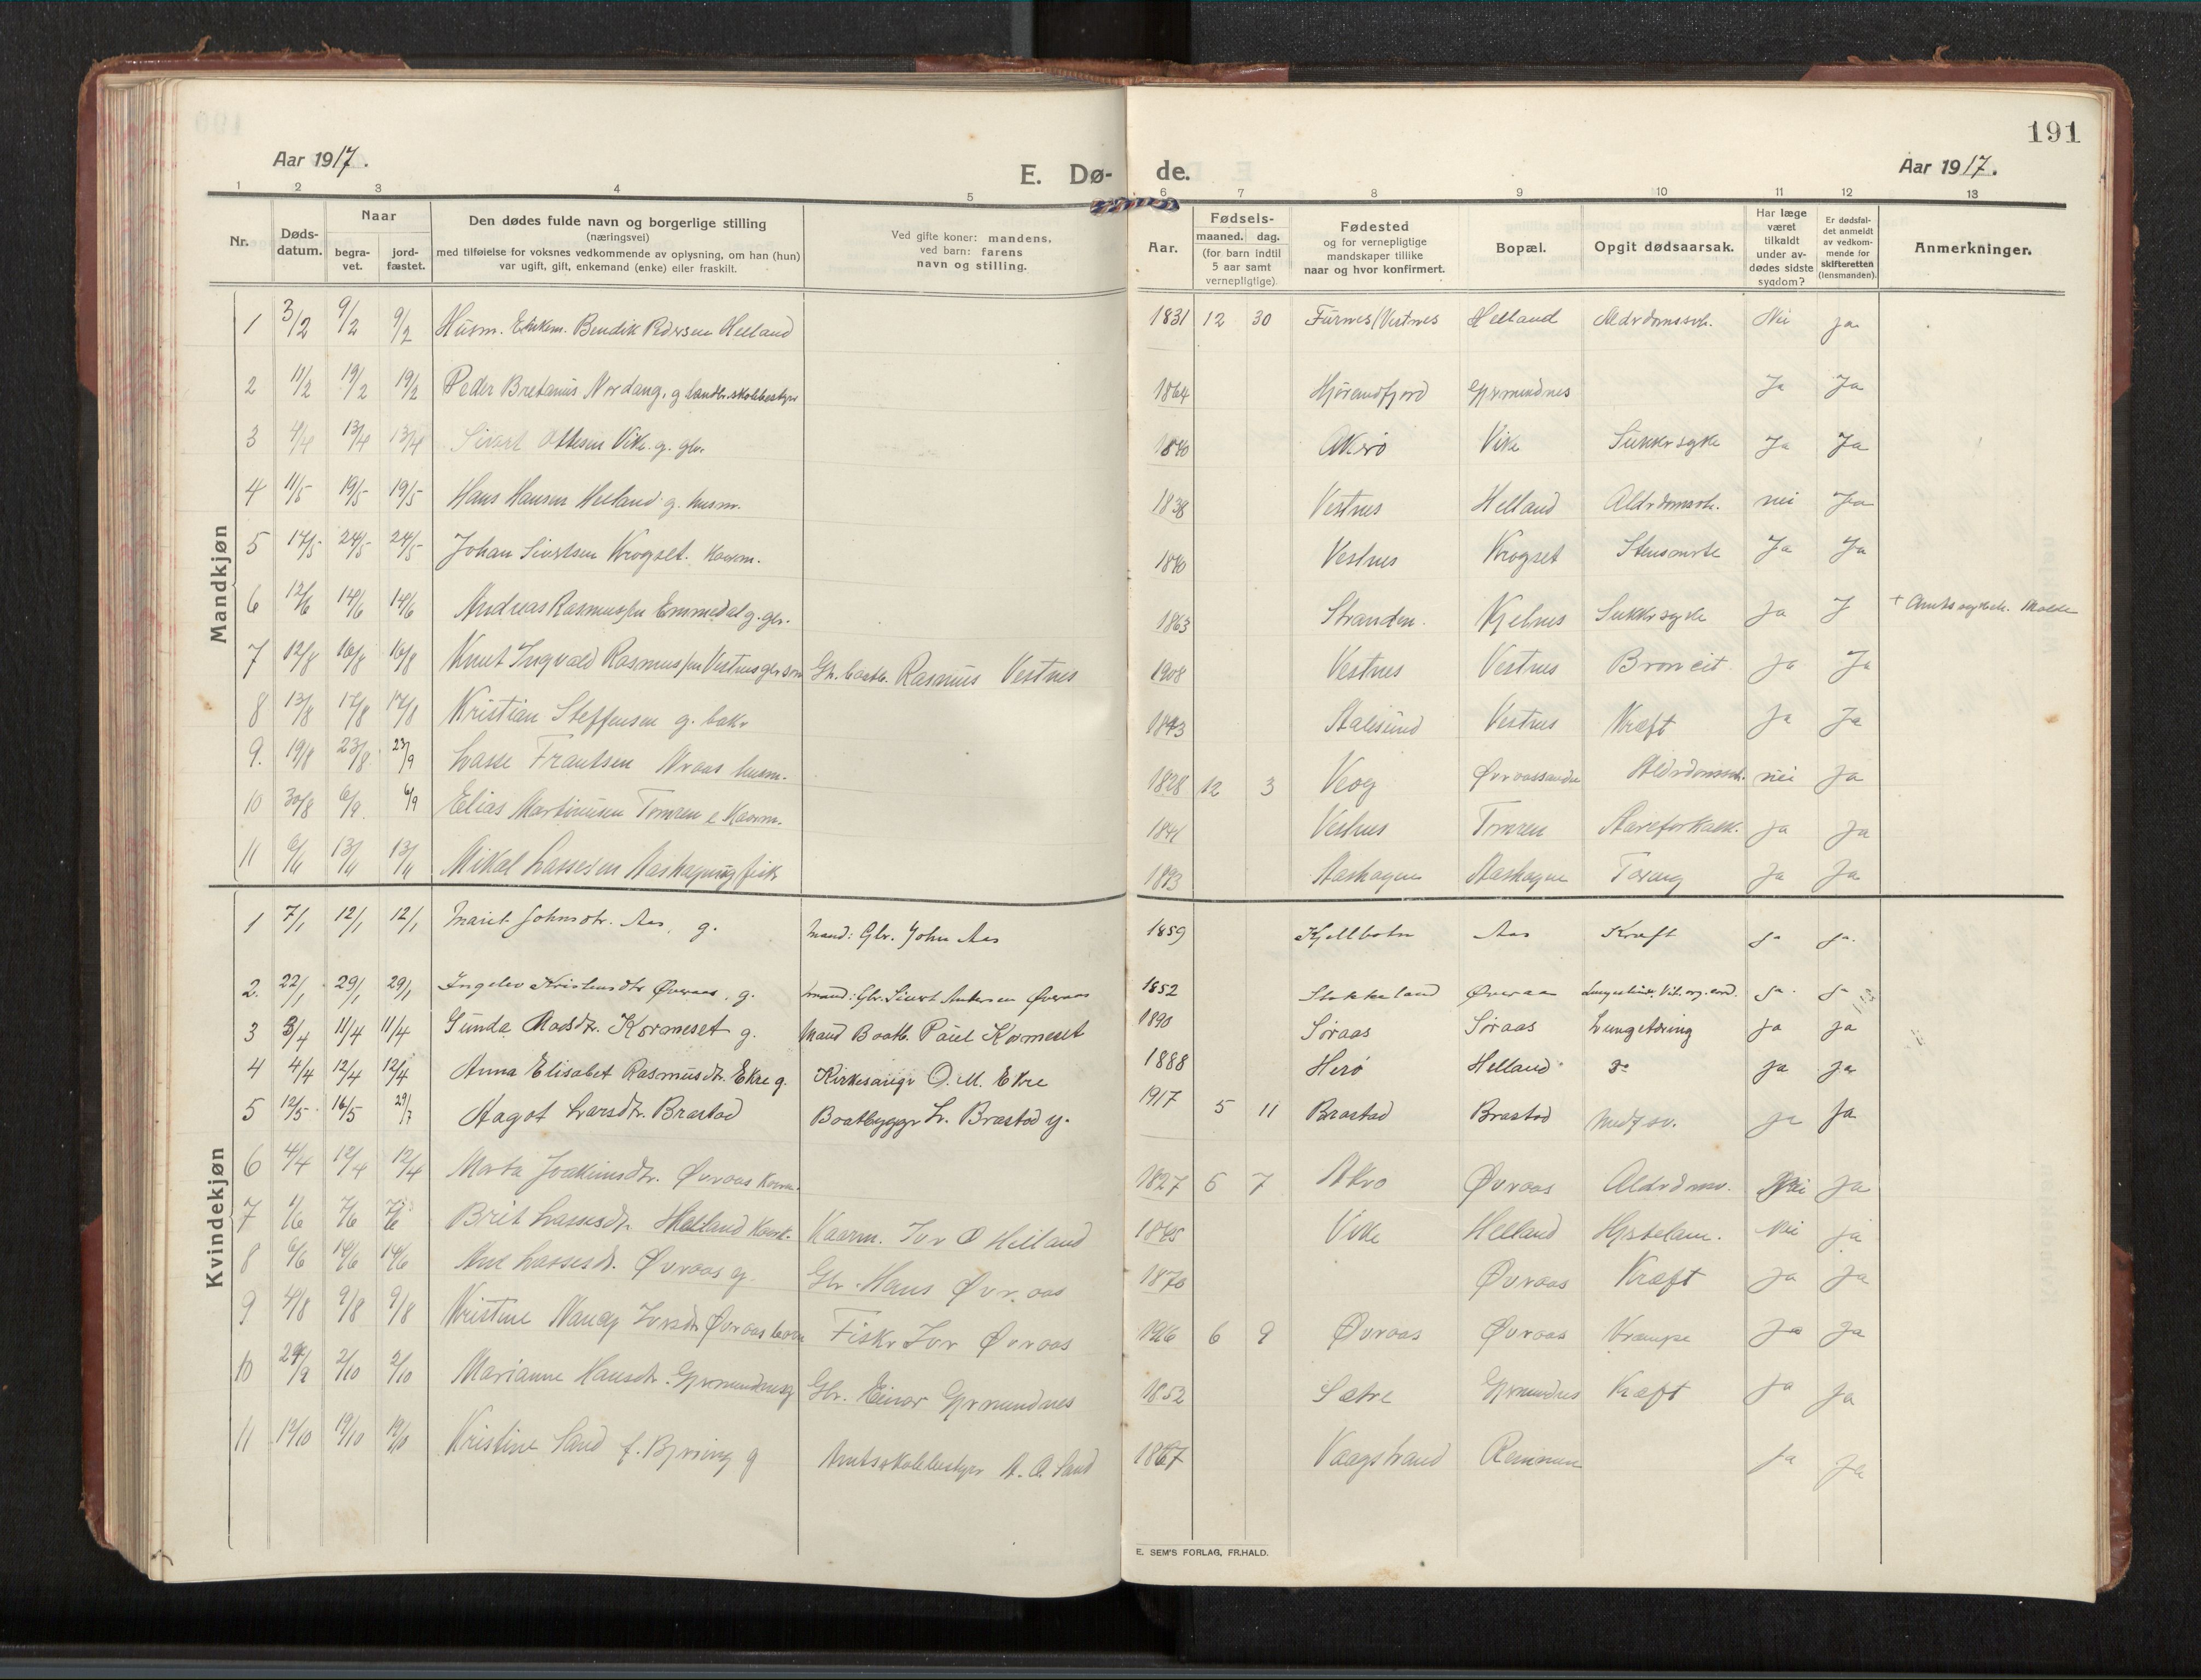 191
Aar 1917.
E. Dø- de.
Aar 1917.
1 2 3 4 5 6 7 8 9 10 11 12 13
Nr.
Døds-
datum.
Naar
begra-
vet.
jord-
fæstet.
Den dødes fulde navn og borgerlige stilling
(næringsvei)
med tilføielse for voksnes vedkommende av oplysning, om han (hun)
var ugift, gift, enkemand (enke) eller fraskilt.
Ved gifte koner: mandens,
ved barn: farens
navn og stilling.
Aar.
Fødsels-
maaned. dag.
(for barn indtil
5 aar samt
vernepligtige).
Fødested
og for vernepligtige
mandskaper tillike
naar og hvor konfirmert.
Bopæl.
Opgit dødsaarsak.
Har læge
været
tilkaldt
under av-
dødes sidste
sygdom?
Er dødsfal-
det anmeldt
av vedkom-
mende for
skifteretten
(lensmanden).
Anmerkninger.
Mandkjøn
1 3/2 9/2 9/2 Husm. Enkem. Bendik Pedersen Helland 1831 12 30 Furnes/Vestnes Helland Alderdomssvk. Nei ja
2 11/2 19/2 19/2 Peder Bretanus Nordang, g landbr.skolebestyr 1864 Hjørendfjord Gjermundnes Ja Ja
3 4/4 13/4 13/4 Sivert Ottesen Vike. g. gbr. 1840 Akerø Vike Sukkersyke Ja Ja
4 11/5 19/5 19/5 Hans Hansen Helland g. husm. 1838 Vestnes Helland Alderdomssvk. nei Ja
5 17/5 24/5 24/5 Johan Sivertsen Krogset. Kaarm. 1840 Vestnes Krogset Stensmerte Ja Ja
6 12/6 14/6 14/6 Andreas Rasmussen Emmedal g. gbr. 1863 Stranden. Kjelnes Sukkersyke Ja J + Amtssykeh. Molde
7 12/8 16/8 16/8 Knut Ingvald Rasmussen Vestnes gbr søn Gbr. baatb. Rasmus Vestnes 1908 Vestnes Vestnes Broncit ja Ja
8 13/8 17/8 17/8 Kristian Steffensen g. baker 1843 Aalesund Vestnes Kræft Ja Ja
9. 19/8 23/8 23/9 Lasse Frantsen Øvraas husm. 1828 12 3 Veøy Øvraassanden Alderdomssvk. nei Ja
10 30/8 6/9. 6/9 Elias Martinusen Tomren e Kaarm. 1841 Vestnes Tomren Aareforkalk. ja Ja
11 6/11 13/11 13/11 Mikal Lassesen Aashagen ug fisk 1893 Aashagen Aashagen Tæring Ja Ja
Kvindekjøn
1 7/1 12/1 12/1 Marit Johnsdtr. Aas, g. Mand: Gbr. John Aas 1859 Kjellbotn Aas Kræft ja ja.
2. 22/1 29/1 29/1 Ingelev Kristensdtr Øveraas, g. Mand: Gbr. Sivert Andersen Øveraas 1852 Stokkeland Øveraas Lungebet. Vit. org. cord. Ja. ja
3 3/4 11/4 11/4 Gunda Madsdtr. Kormeset g. Mand Baatb. Paul Kormeset 1890 Søraas Søraas Lungetæring ja ja
4 4/4 12/4 12/4 Anna Elisabet Rasmusdtr. Ekre g. Kirkesanger O. M. Ekre 1888 Herø Helland do ja ja
5 12/5 16/5 29/7 Aagot Larsdtr. Brastad Baatbygger L. Brastad g. 1917 5 11 Brastad Brastad Medf. sv. ja Ja
6 4/4 12/4 12/4 Marta Joakimsdtr. Øvraas Kaark. 1827 6 7 Akerø Øvraas Alderdomsv. Nei Ja
7 1/6 7/6 7/6 Brit Lassesdtr. Helland Kaark. Kaarm. Iver O Helland 1845 Vike Helland Hjertelam. Nei ja
8 6/6 14/6 14/6 Ane Lassesdt. Øvraas g. Gbr. Hans Øveraas 1870 Øvraas Kræft ja Ja
9 4/8 9/8 9/8 Kristine Nancy Iversdtr Øvraas barn Fisker Iver Øvraas 1916 6 9 Øvraas Øvraas Krampe Ja Ja
10 24/9 2/10 2/10 Marianne Hansdtr. Gjermundnes g Gbr. Einar Gjermundnes 1852 Sætre Gjermundnes Kræft ja Ja
11 12/10 19/10 19/10 Kristine Sand f. Bjøring g Amtsskolebestyrer A. O. Sand 1867 Vaagstrand Remmem ja Ja
E. SEM'S FORLAG, FR.HALD.